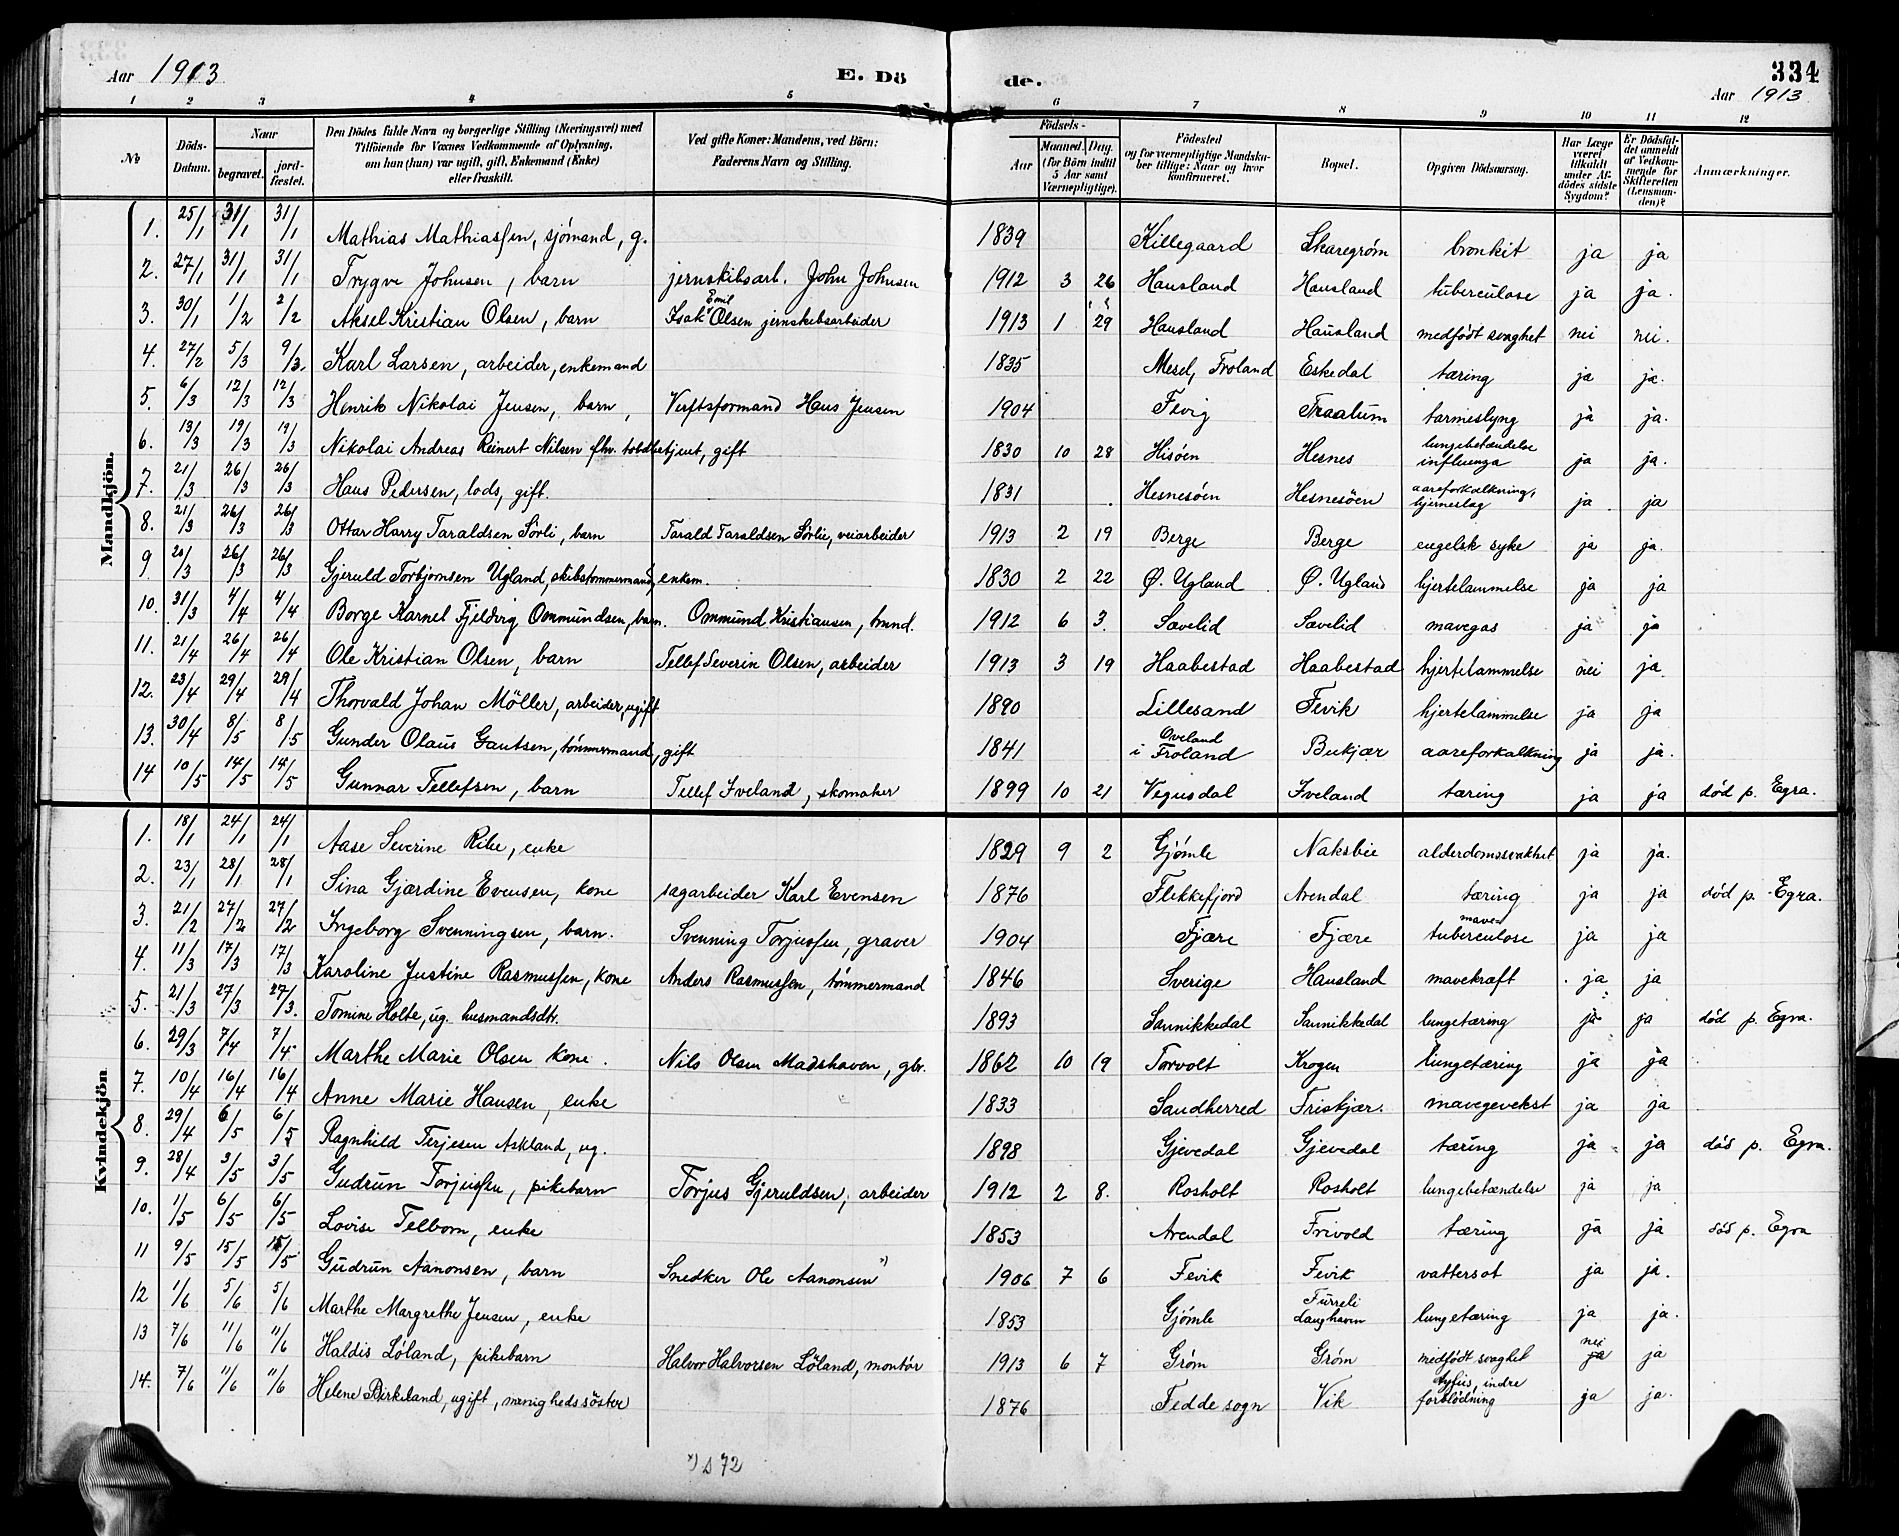 Aar 1913
E. Dö de.
334
Aar 1913
1 2 3 4 5 6 7 8 9 10 11 12
No
Döds-Datum.
Naar begravet. jord-fæstet.
Den Dödes fulde Navn og borgerlige Stilling (Næringsvei) med Tilföiende for Voxnes Vedkommende af Oplysning, om hun (han) var ugift, gift, Enkemand (Enke) eller fraskilt.
Ved gifte Koner: Mandens, ved Börn: Faderens Navn og Stilling.
Födsels-
Aar
Maaned. Dag. (for Börn indtil 5 Aar samt Værnepligtige).
Födested og for værnepligtige Mandskaber tillige: Naar og hvor konfirmeret.
Bopæl.
Opgiven Dödsaarsag.
Har Læge været tilkaldt under Afdödes sidste Sygdom?
Er Dödsfaldet anmeldt af Vedkommende for Skifteretten (Lensmanden)?
Anmærkninger.
Mandkjön.
1. 25/1 31/1 31/1 Mathias Mathiassen, sjömand, g. 1839 Killegaard Skaregrøm bronkit ja ja
2. 27/1 31/1 31/1 Trygve Johnsen, barn jernskibsarb. John Johnsen 1912 3 26 Hausland Hausland tuberculose ja ja.
3. 30/1 1/2 2/2 Aksel Kristian Olsen, barn Isak Emil Olsen jernskibsarbeider 1913 1 29 Hausland Hausland medfödt svaghet nei nei.
4. 27/2 5/3 9/3. Karl Larsen, arbeider, enkemand 1835 Mesel, Froland Eskedal tæring ja ja.
5. 6/3 12/3 12/3 Henrik Nikolai Jensen, barn, Verftsformand Hans Jensen 1904 Fevig Fraalum tarmeslyng ja ja.
6. 13/3 19/3 19/3 Nikolai Andreas Reinert Nilsen fhv. toldbetjent, gift 1830 10 28 Hisöen Hesnes lungebetændelse influenza ja ja.
7. 21/3 26/3 26/3 Hans Pedersen, lods, gift. 1831 Hesnesöen Hesnesöen aareforkalkning, hjerneslag ja ja
8. 21/3 26/3 26/3 Ottar Harry Taraldsen Sörli, barn Tarald Taraldsen Sörlie, veiarbeider 1913 2 19 Berge Berge engelsk syke ja ja.
9 20/3 26/3 26/3 Gjeruld Torbjornsen Ugland, skibstommermand, enkem. 1830 2 22 Ø. Ugland Ø. Ugland hjertelammelse ja ja
10. 31/3 4/4 4/4 Borge Karnel Fjeldvig Ommundsen, barn. Ommund Kristiansen, brund. 1912 6 3. Sævelid Sævelid mavegas ja ja
11. 21/4 26/4 26/4 Ole Kristian Olsen, barn Tellef Severin Olsen, arbeider 1913 3 19 Haabestad Haabestad hjertelammelse nei ja.
12. 23/4 29/4 29/4 Thorvald Johan Möller, arbeider, ugift 1890 Lillesand Fevik hjertelammelse ja ja
13. 30/4 8/5 8/5 Gunder Olaus Gautsen, tömmermand, gift 1841 Oveland i Froland Bukjær aareforkalkning ja ja.
14 10/5 14/5 14/5 Gunnar Tellefsen, barn Tellef Iveland, skomaker 1899 10 21 Vegusdal Iveland tæring ja ja död p. Egra.
Kvindekjön
1. 18/1 24/1 24/1 Aase Severine Ribe, enke 1829 9 2 Gjömle Naksbie alderdomssvakhet ja ja.
2. 23/1 28/1 28/1 Sina Gjærdine Evensen, kone sagarbeider Karl Evensen 1876 Flekkefjord Arendal tæring ja ja död p. Egra.
3. 21/2 27/2 27/2 Ingeborg Svenningsen, barn. Svenning Torjussen, graver 1904 Fjære Fjære mave-tuberculose ja ja
4. 11/3 17/3 17/3 Karoline Justine Rasmussen, kone Anders Rasmussen, tömmermand 1846 Sverige Hausland mavekræft ja ja
5. 21/3 27/3 27/3. Tomine Holte, ug. husmandsdtr. 1893 Sannikkedal Sannikkedal lungetæring ja ja död p. Egra.
6. 29/3 7/4 7/4 Marthe Marie Olsen kone. Nils Olsen Madshaven, gbr. 1862 10 19 Torvolt Krogen lungetæring ja ja
7. 10/4 16/4 16/4 Anne Marie Hansen, enke 1833 Sandherred Friskjær. mavegevekst ja ja
8. 29/4 6/5 6/5 Ragnhild Terjesen Askland, ug. 1898 Gjevedal Gjevedal tæring ja ja död p. Egra.
9. 28/4 3/5 3/5 Gudrun Torjussen, pikebarn Torjus Gjeruldsen, arbeider 1912 2 8. Rosholt Rosholt lungebetændelse ja ja
10. 1/5 6/5 6/5 Lovise Telborn, enke 1853 Arendal Frivold tæring ja ja död p. Egra
11 9/5 15/5 15/5 Gudrun Aanonsen, barn Snedker Ole Aanonsen *) 1906 7 6 Fevik Fevik vattersot ja ja.
12 1/6 5/6 5/6 Marthe Margrethe Jensen, enke 1853 Gjömle Furreli Langhaven lungetæring ja ja.
13 7/6 11/6 11/6 Haldis Löland, pikebarn Halvor Halvorsen Löland, montör 1913 6 7 Gröm Gröm medfödt svaghet nei ja ja
14. 7/6 11/6 11/6 Helene Birkeland, ugift, menighedssöster 1876 Fedde sogn Vik tyfus, indre forblödning ja ja.
*) s 72